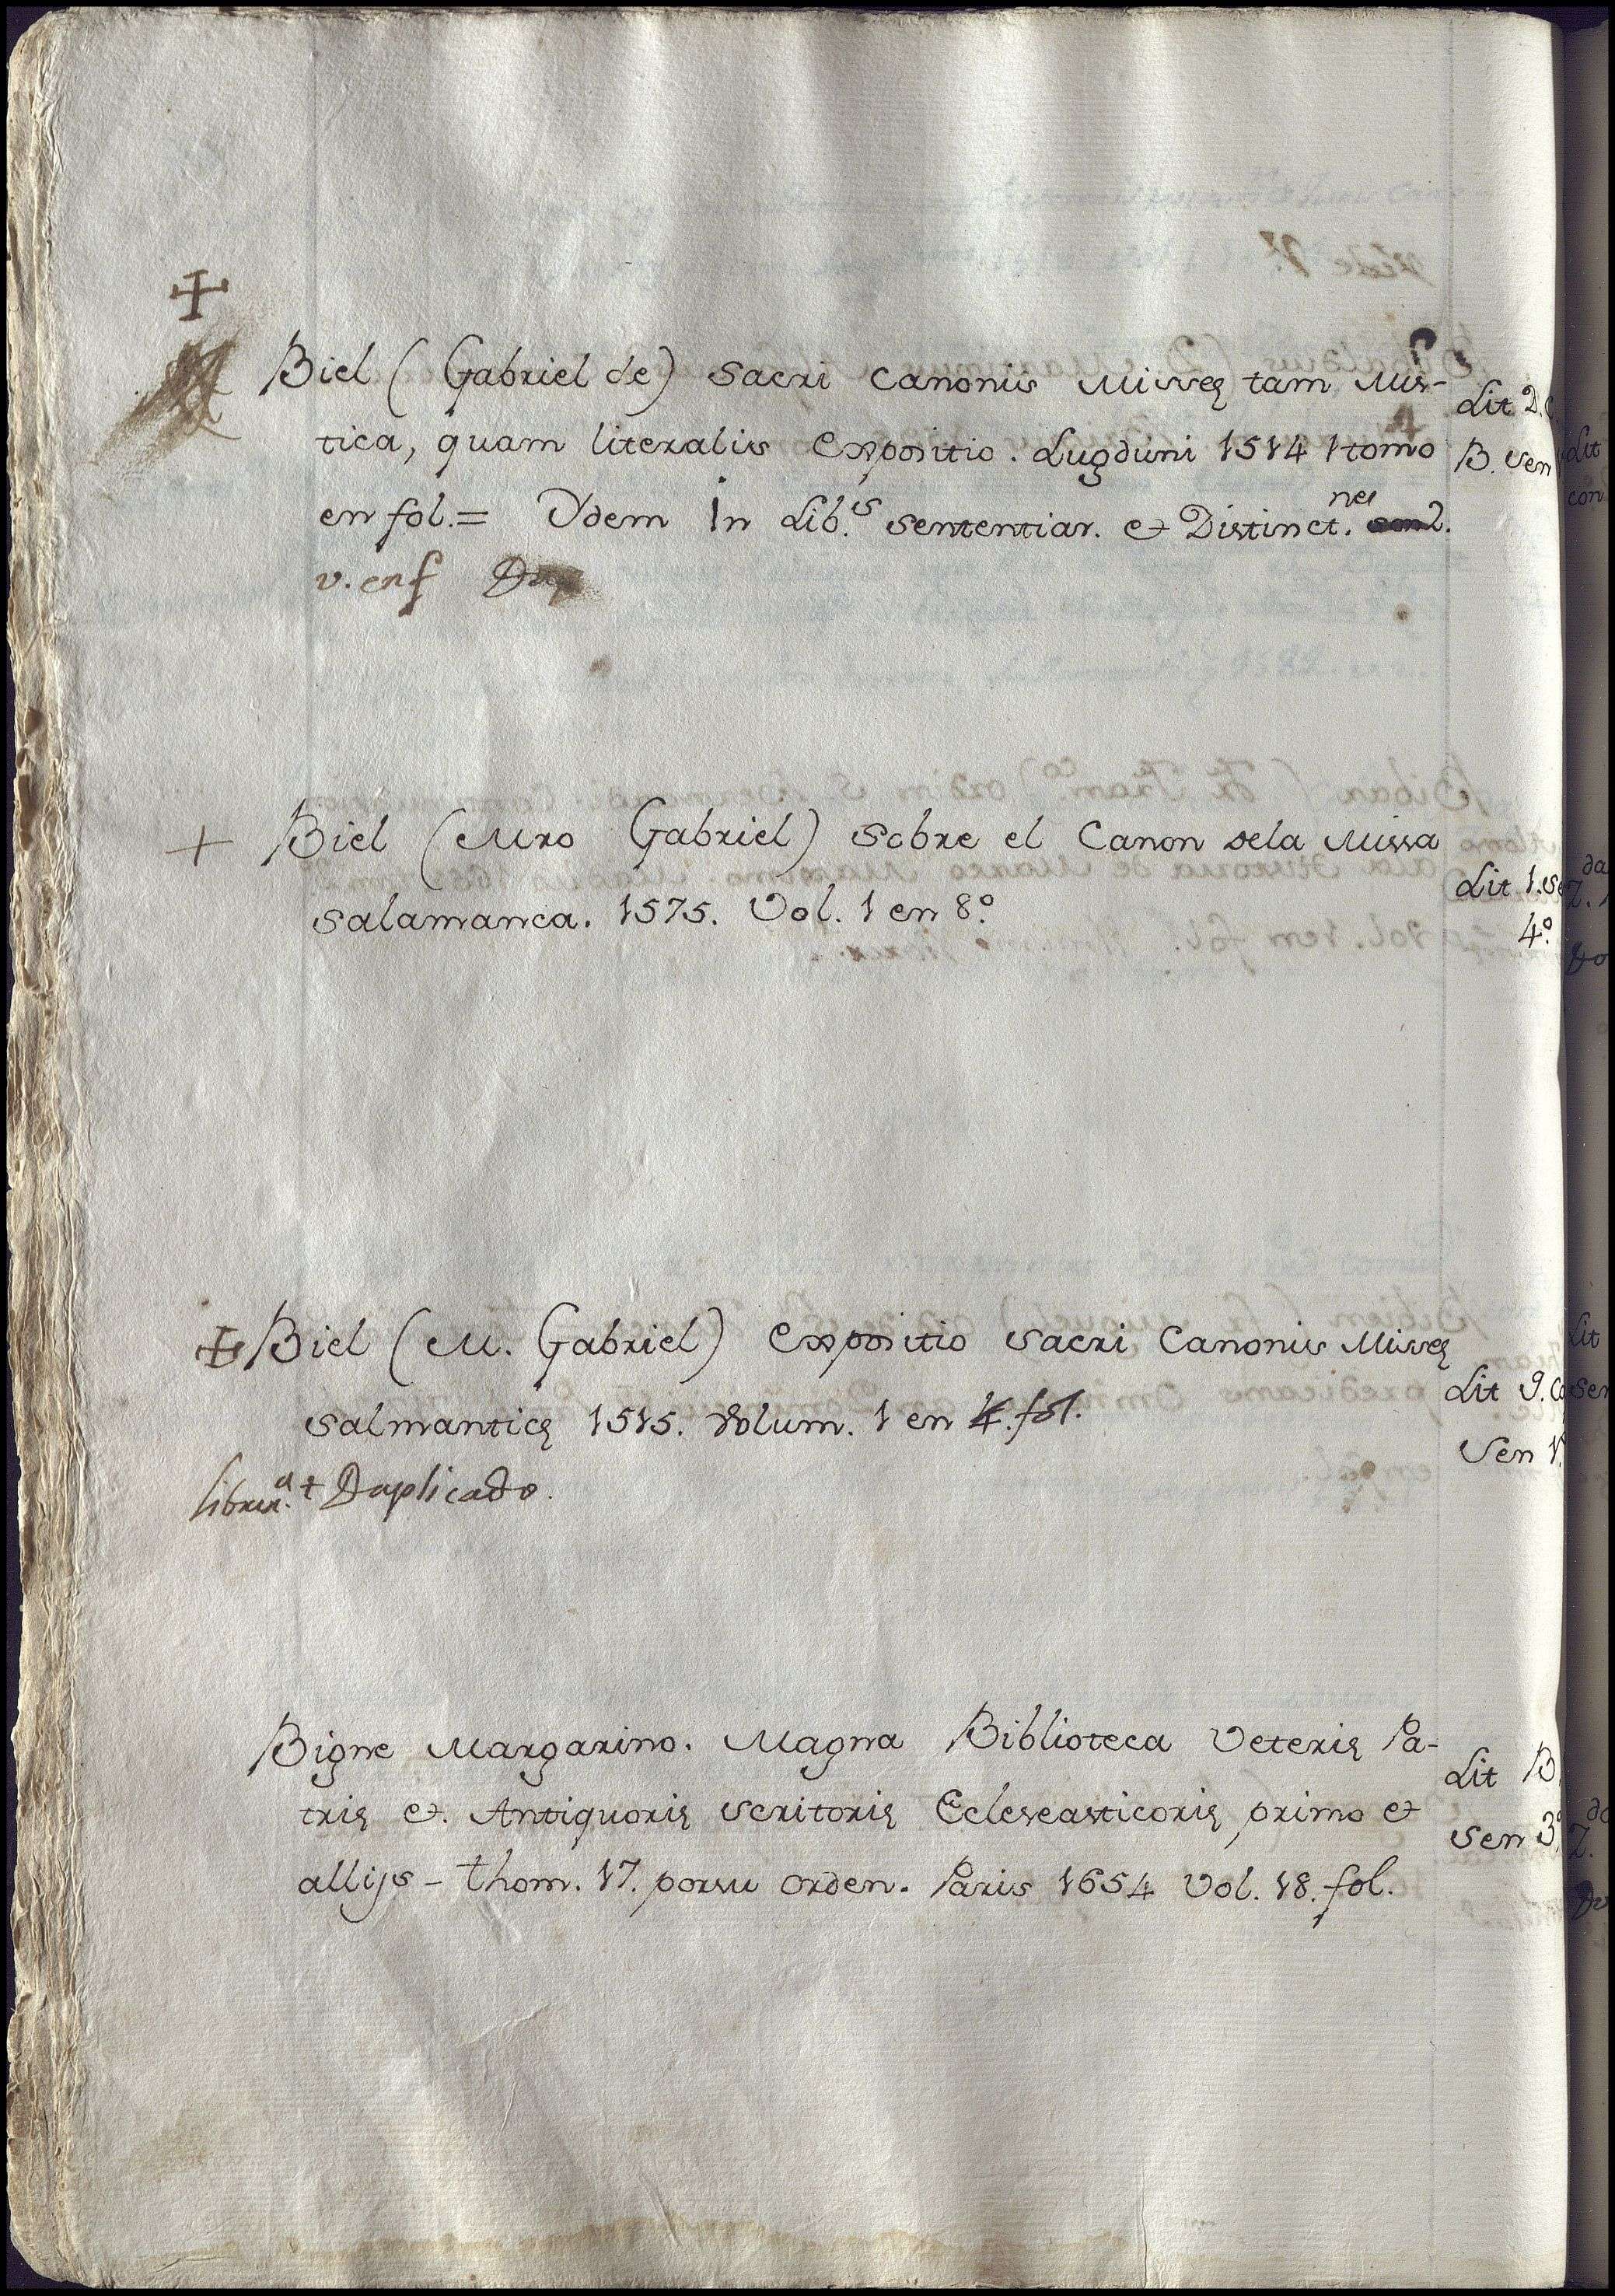 Biel (Gabriel de) Sacri Canonis Missę tam Mis-
tica, quam literalis Expositio. Lugduni 1514 1 tomo
en fol. = Ydem In Lib.s Sententiar. et Distinct.nes 2.
v. en f
Lit D.
B. Sen
+ Biel (Mro Gabriel) Sobre el Canon dela Missa
Salamanca. 1575. Vol. 1 en 8º
Lit 1. Se
4º
Biel (M. Gabriel) Expositio Sacri Canonis Missę
Salmanticę 1515. Volum. 1 en fol.
librer.a + Duplicado.
Lit 9. Ca
Sen 1
Bigne Margarino. Magna Biblioteca Veterię Pa-
trię et. Antiquorię Scritorię Ecleseasticorię primo et
allijs - thom. 17. porsu orden. Paris 1654 Vol. 18. fol.
Lit B.
Sen 3º